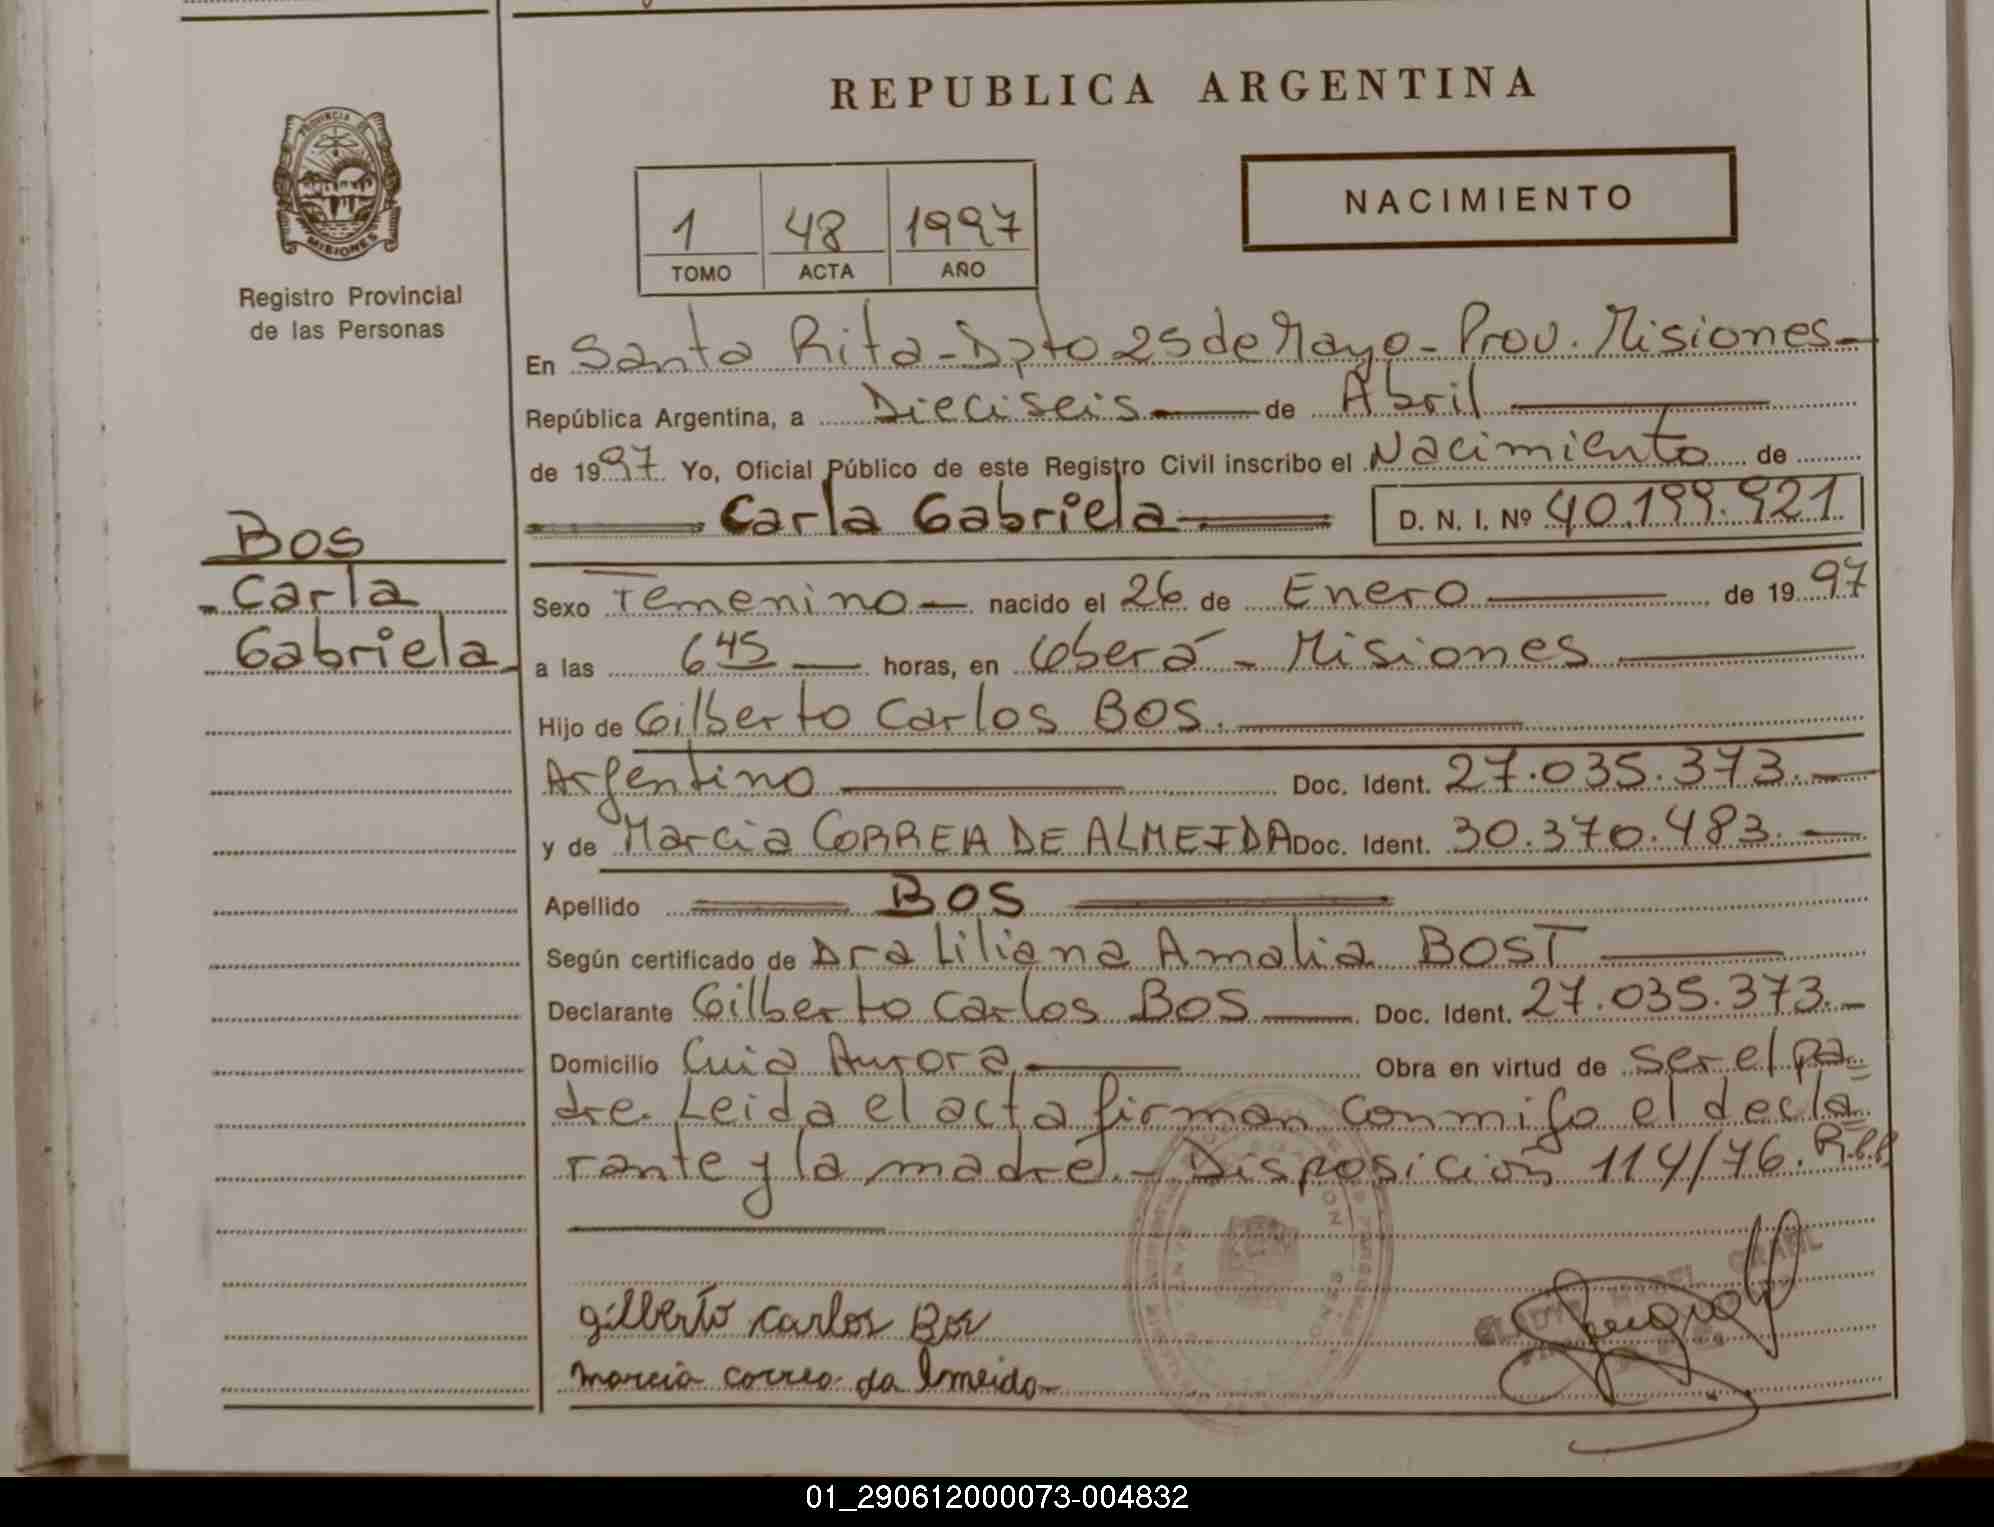 REPUBLICA ARGENTINA
PROVINCIA DE
MISIONES
Registro Provincial
de las Personas
NACIMIENTO
1 48 1997
TOMO ACTA AÑO
En Santa Rita - Dpto 25 de Mayo - Prov. Misiones -
República Argentina, a Dieciseis de Abril
de 1997 Yo, Oficial Público de este Registro Civil inscribo el Nacimiento de
Carla Gabriela D. N. I. Nº 40.199.921
Bos
Carla
Gabriela
Sexo Femenino nacido el 26 de Enero de 1997
a las 6 45 horas, en Oberá - Misiones
Hijo de Gilberto Carlos BOS.
Argentino Doc. Ident. 27.035.373.
y de Marcia CORREA DE ALMEIDA Doc. Ident. 30.370.483.
Apellido BOS
Según certificado de Dra Liliana Amalia BOST
Declarante Gilberto Carlos BOS Doc. Ident. 27.035.373.
Domicilio Cuia Aurora Obra en virtud de ser el pa=
dre. Leida el acta firman conmigo el decla=
rante y la madre. - Disposición 114/76.
gilberto carlos Bos
marcia correa da lmeida
01_290612000073-004832